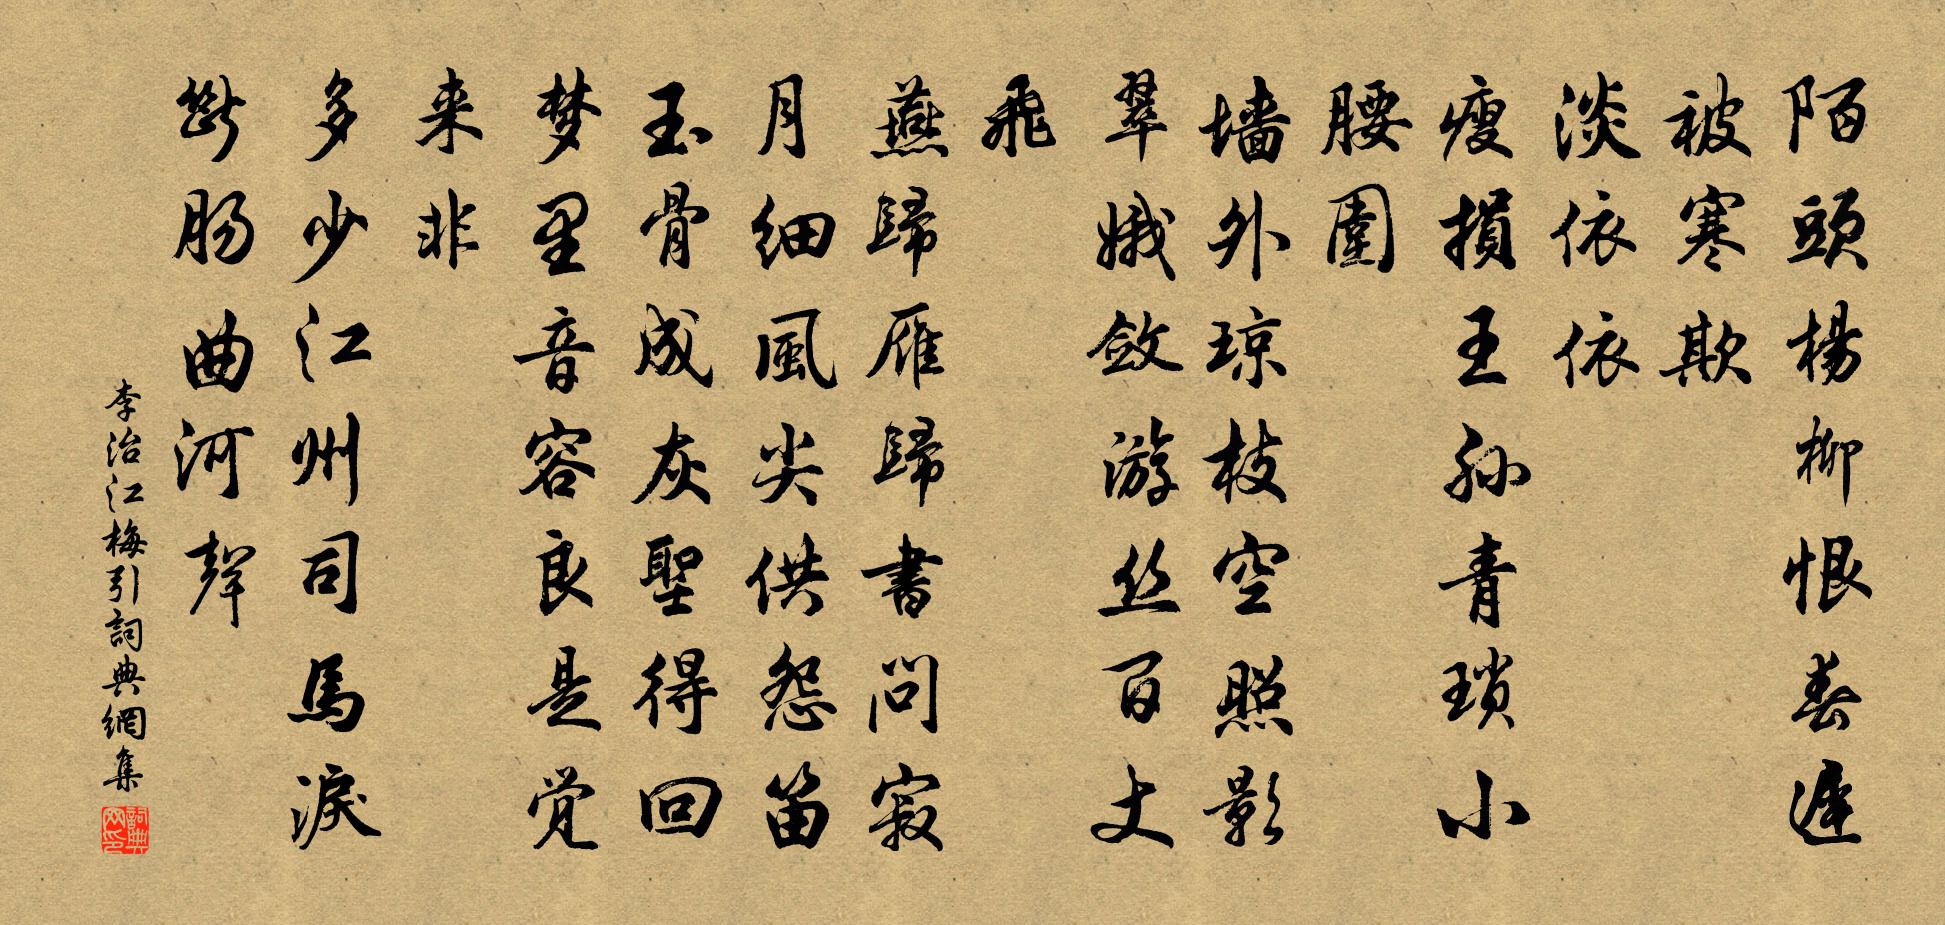 陌頭楊柳恨春遲
被寒欺
淡依依
瘦損王孙青瑣小
腰圍
墙外琼枝空照影
翠娥斂游丝百丈
飛
燕歸雁歸書問寂
月细風尖供怨笛
玉骨成灰聖得回
梦里音容良是觉
来非
多少江州司馬淚
断肠曲河聲
李治江梅引詞典網集
詞典网印